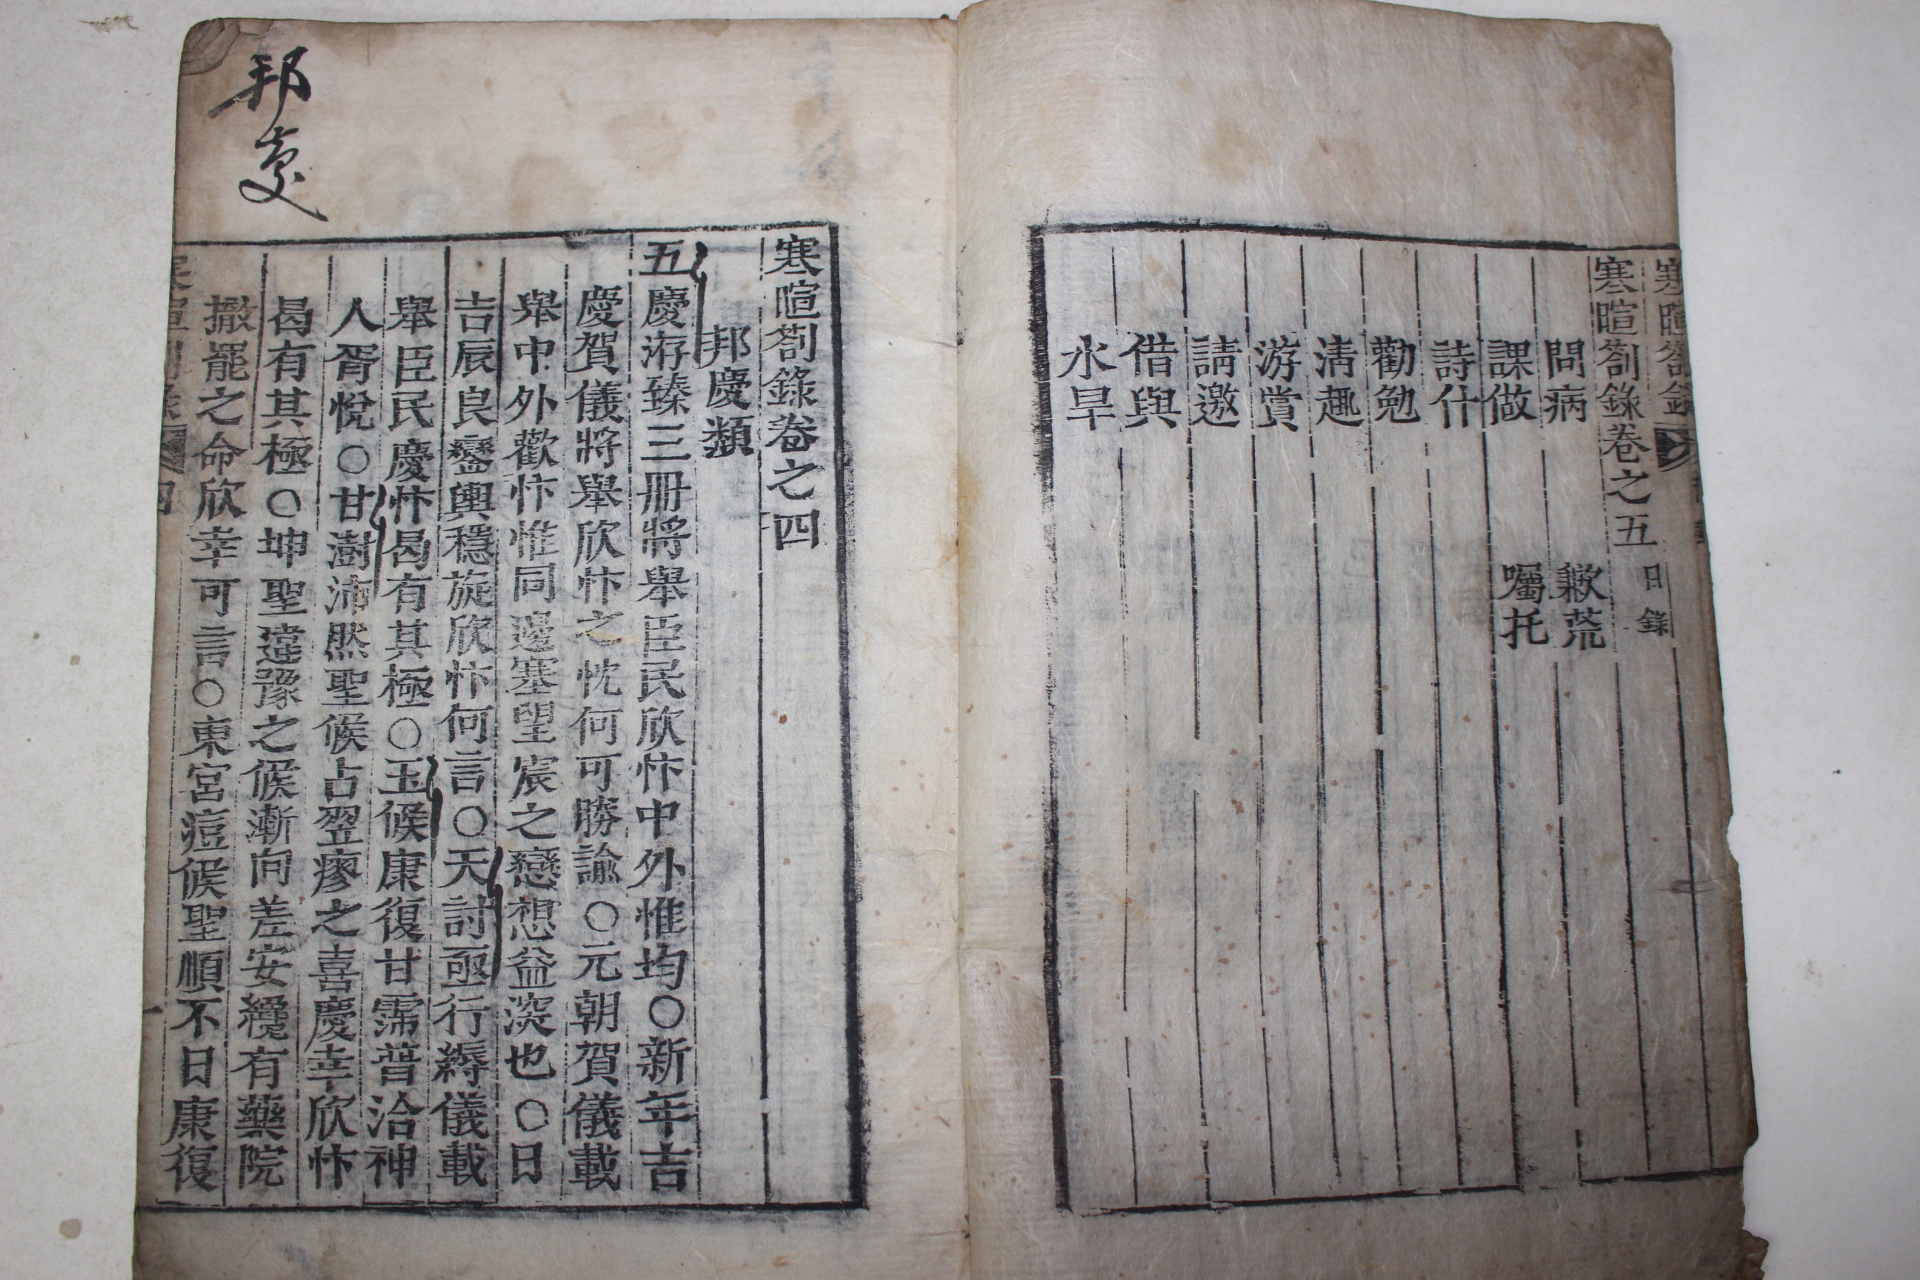 寒暄劄錄卷之五
目錄
問病 歉荒
課做 囑托
詩什
勸勉
淸趣
游賞
請邀
借與
水旱
邦慶
寒暄劄錄卷之四
邦慶類
五慶洊臻三冊將舉臣民欣忭中外惟均○新年吉
慶賀儀將舉欣忭之忱何可勝諭○元朝賀儀載
舉中外歡忭惟同邊塞望宸之戀想益深也○日
吉辰良鑾輿穩旋欣忭何言○天討亟行縟儀載
舉臣民慶忭曷有其極○玉候康復甘霈普洽神
人胥悅○甘澍沛然聖候占翌瘳之喜慶幸欣忭
曷有其極○坤聖違豫之候漸向差安纔有藥院
撤罷之命欣幸可言○東宮痘候聖順不日康復